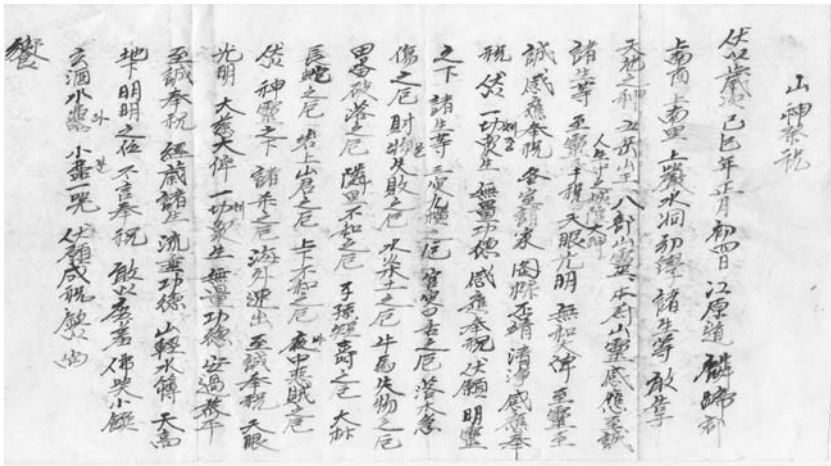 山神祭祝
伏以歲次 己巳年 正月 初四日 江原道 麟蹄郡
上南面 上南里 上嚴水洞 初學 諸生等 敢告于
天地之神 五岳山王 八部山靈 本府山靈 感應至誠
諸生等 至靈奉祝 天眼光明 無私大神 至靈至
誠 感應奉祝 各宜諸家 清淨 感應奉
祝 伏以 一切衆生 無量功德 感應奉祝 伏願 明靈
之下 諸生等 三災九橫之厄 官署舌之厄 落木急
傷之厄 財物失敗之厄 水柴土之厄 牛馬失物之厄
田畓砂落之厄 隣里不知之厄 子孫短壽之厄 大林
長蛇之厄 岩上山君之厄 上下不知之厄 夜中惡賊之厄
伏 神靈之下 諸來之厄 海外速出 至誠奉祝 天眼
光明 大慈大俾 一切衆生 無量功德 安過泰平
至誠奉祝 經歲諸生 流垂功德 山輕水傳 天高
地下 明明之位 不言奉祝 敢以 小饌
玄酒水 小盡一咒 伏願咸祝 尙
饗